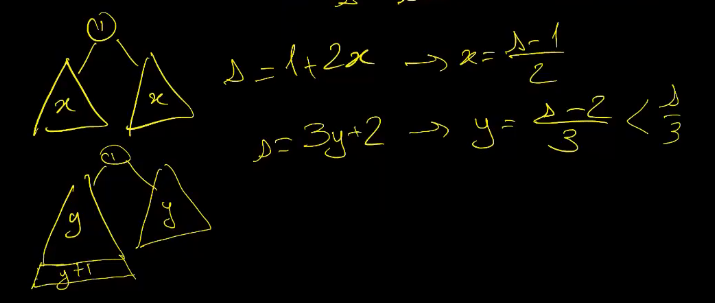 11
x x
s = 1 + 2x → x = \frac{s-1}{2}
s = 3y + 2 → y = \frac{s-2}{3} < \frac{s}{3}
y y
y+1